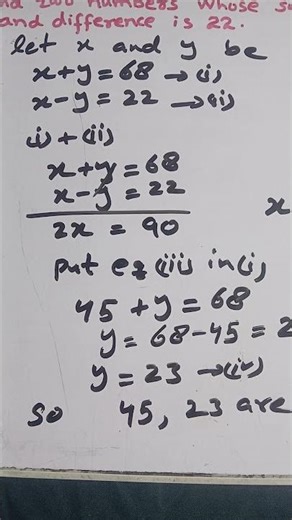 two numbers whose
and difference is 22.
let x and y be
x+y=68 →(i)
x-y=22 →(ii)
(i)+(ii)
x+y=68
x-y=22
2x = 90
x
put eq (iii) in (i)
45+y=68
y=68-45=2
y=23 →(iv)
so 45, 23 are